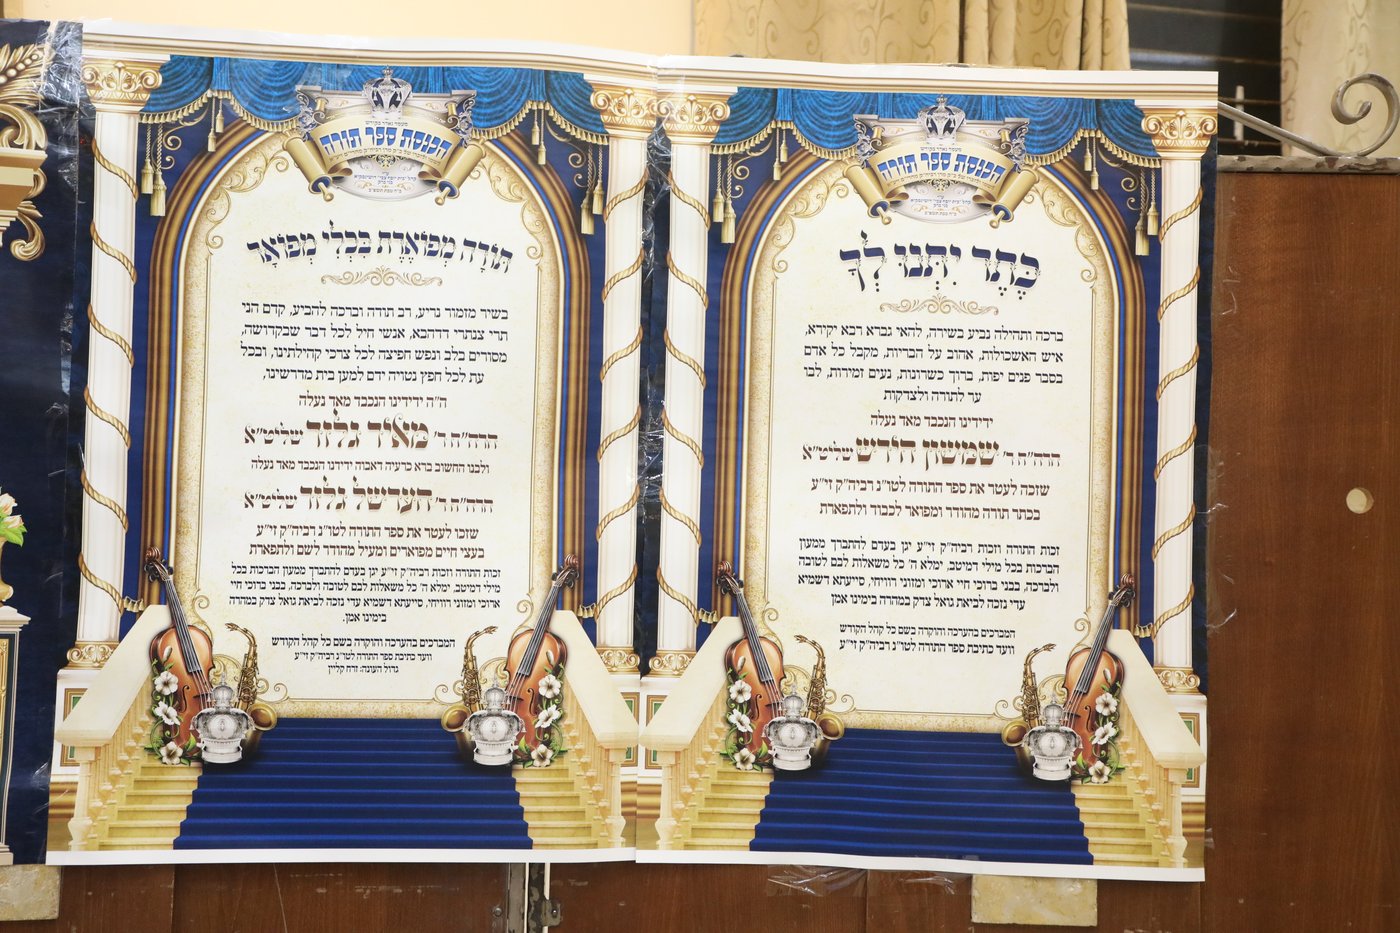 מעמד נאדר בקודש
הכנסת ספר תורה
קהל "בית יוסף צבי" דושינסקיא
בני ברק
תורה מפוארת בכלי מפואר
בשיר מזמור נריע, רב תודה וברכה להביע, קדם הני
תרי צנתרי דדהבא, אנשי חיל לכל דבר שבקדושה,
מסורים בלב ונפש חפיצה לכל צרכי קהילתינו, ובכל
עת לכל חפץ נטויה ידם למען בית מדרשינו,
ה"ה ידידינו הנכבד מאד נעלה
הרה"ח ר' מאיר גלזר שליט"א
ולבנו החשוב ברא כרעיה דאבוה ידידינו הנכבד מאד נעלה
הרה"ח ר' העדשל גלזר שליט"א
שזכו לעטר את ספר התורה לטו"נ רביה"ק זי"ע
בעצי חיים מפוארים ומעיל מהודר לשם ולתפארת
זכות התורה וזכות רביה"ק זי"ע יגן בעדם להתברך ממעון הברכות בכל
מילי דמיטב, ימלא ה' כל משאלות לבם לטובה ולברכה, בבני ברוכי חיי
אריכי ומזוני רוויחי, סייעתא דשמיא עדי נזכה לביאת גואל צדק במהרה
בימינו אמן.
המברכים בהערכה והוקרה בשם כל קהל הקודש
וועד כתיבת ספר התורה לטו"נ רביה"ק זי"ע
גדול העונה: זרח קליין
מעמד נאדר בקודש
הכנסת ספר תורה
קהל "בית יוסף צבי" דושינסקיא
בני ברק
כתר יתנו לך
ברכה ותהילה נביע בשירה, להאי גברא רבא יקירא,
איש האשכולות, אהוב על הבריות, מקבל כל אדם
בסבר פנים יפות, ברוך כשרונות, נעים זמירות, לבו
ער לתורה ולצדקות
ידידינו הנכבד מאד נעלה
הרה"ח ר' שמשון הירש שליט"א
שזכה לעטר את ספר התורה לטו"נ רביה"ק זי"ע
בכתר תורה מהודר ומפואר לכבוד ולתפארת
זכות התורה וזכות רביה"ק זי"ע יגן בעדם להתברך ממעון
הברכות בכל מילי דמיטב, ימלא ה' כל משאלות לבם לטובה
ולברכה, בבני ברוכי חיי ארוכי ומזוני רוויחי, סייעתא דשמיא
עדי נזכה לביאת גואל צדק במהרה בימינו אמן
המברכים בהערכה והוקרה בשם כל קהל הקודש
וועד כתיבת ספר התורה לטו"נ רביה"ק זי"ע